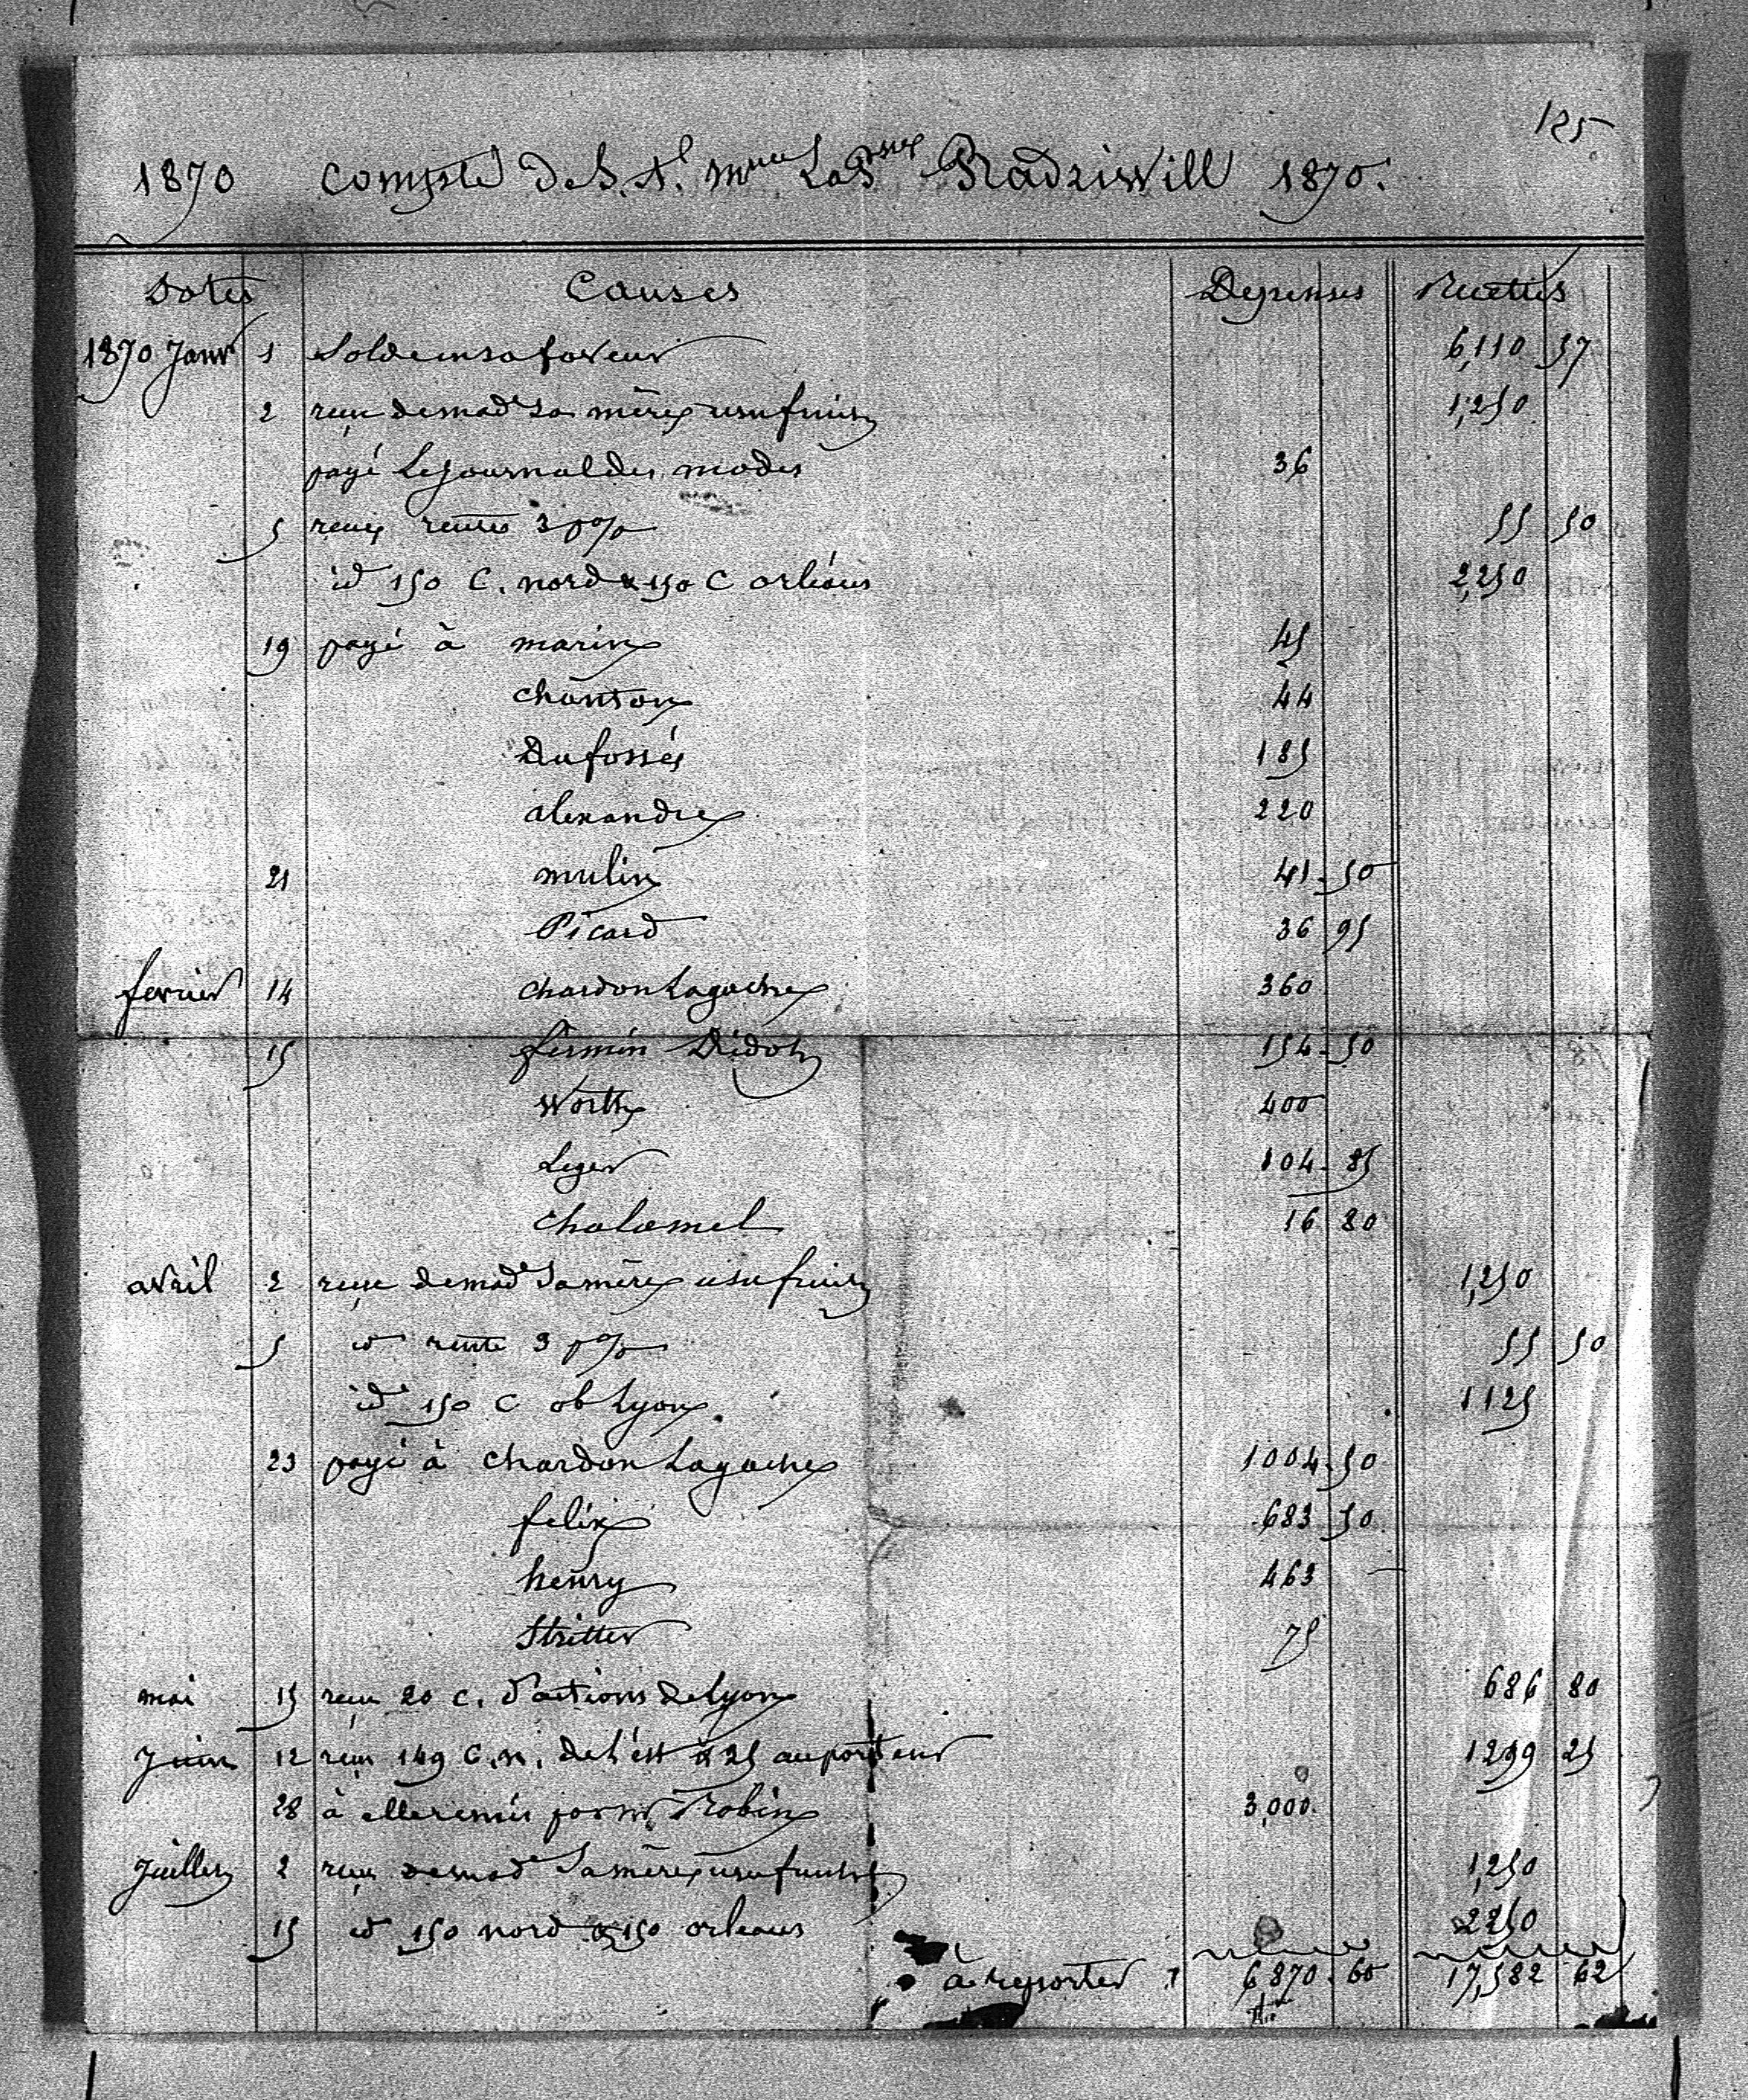 125
1870 Compte de S. A. Mme La Psse Radziwill 1870.
Dates Causes Depenses Recettes
1870 Janv 1 Solde en sa faveur 6,110 57
2 reçu de made sa mère usufruit 1,250
payé Le Journal des modes 36
5 reçu rentes 3 p% 55 50
id 150 C. nord & 150 C orléans 2,250
19 payé à marin 45
chanson 44
Dufossés 185
alexandre 220
21 mulin 41 50
Picard 36 95
fevrier 14 chardon Lagache 360
15 firmin Didot 154 50
Worth 400
Leger 104 85
Chalamel 16 80
avril 2 reçu de made sa mère usufruit 1,250
5 id rente 3 p% 55 50
id 150 C ob Lyon. 1125
23 payé à chardon Lagache 1004 50
felix 683 50
henry 463
Stritter 75
mai 15 reçu 20 c. d'actions de Lyon 686 80
Juin 12 reçu 149 C. n. de l'est & 25 au porteur 1299 25
28 à elle remis par mr Robin 3,000.
Juillet 2 reçu de made sa mère usufruit 1,250
15 id 150 nord & 150 orleans 2250
à reporter 6,870 60 17,582 62